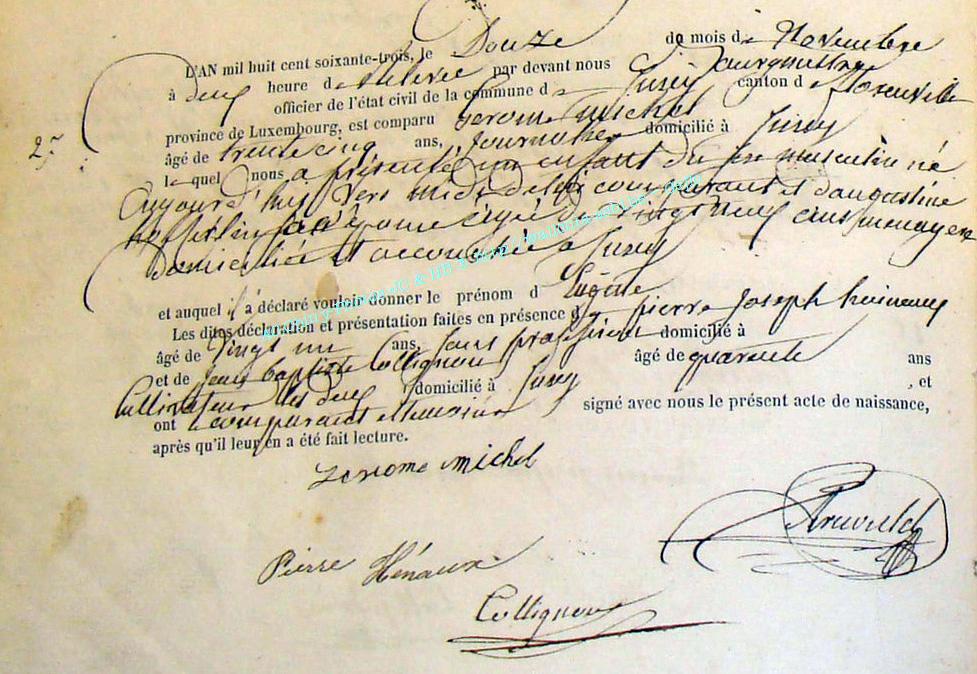 L'AN mil huit cent soixante-trois, le Douze du mois de Novembre
à deux heure de relevée par devant nous
officier de l'état civil de la commune de canton de Florenville
province de Luxembourg, est comparu Jerome michel
25
âgé de trente cinq ans, Journalier domicilié à
lequel nous a présenté un enfant du sexe masculin né
aujourd'hui vers midi de lui comparant et d'augustine
son épouse âgée de vingt neuf ans menagere
domiciliée et accouchée à
et auquel il a déclaré vouloir donner le prénom d Eugène
Les dites déclaration et présentation faites en présence de pierre Joseph
âgé de vingt un ans, sans profession domicilié à
et de jean baptiste Collignon âgé de quarante ans
Cultivateur les deux domicilié à , et
ont le comparant et temoins signé avec nous le présent acte de naissance,
après qu'il leur en a été fait lecture.
Jerome michel
Pierre Hénaux
Collignon